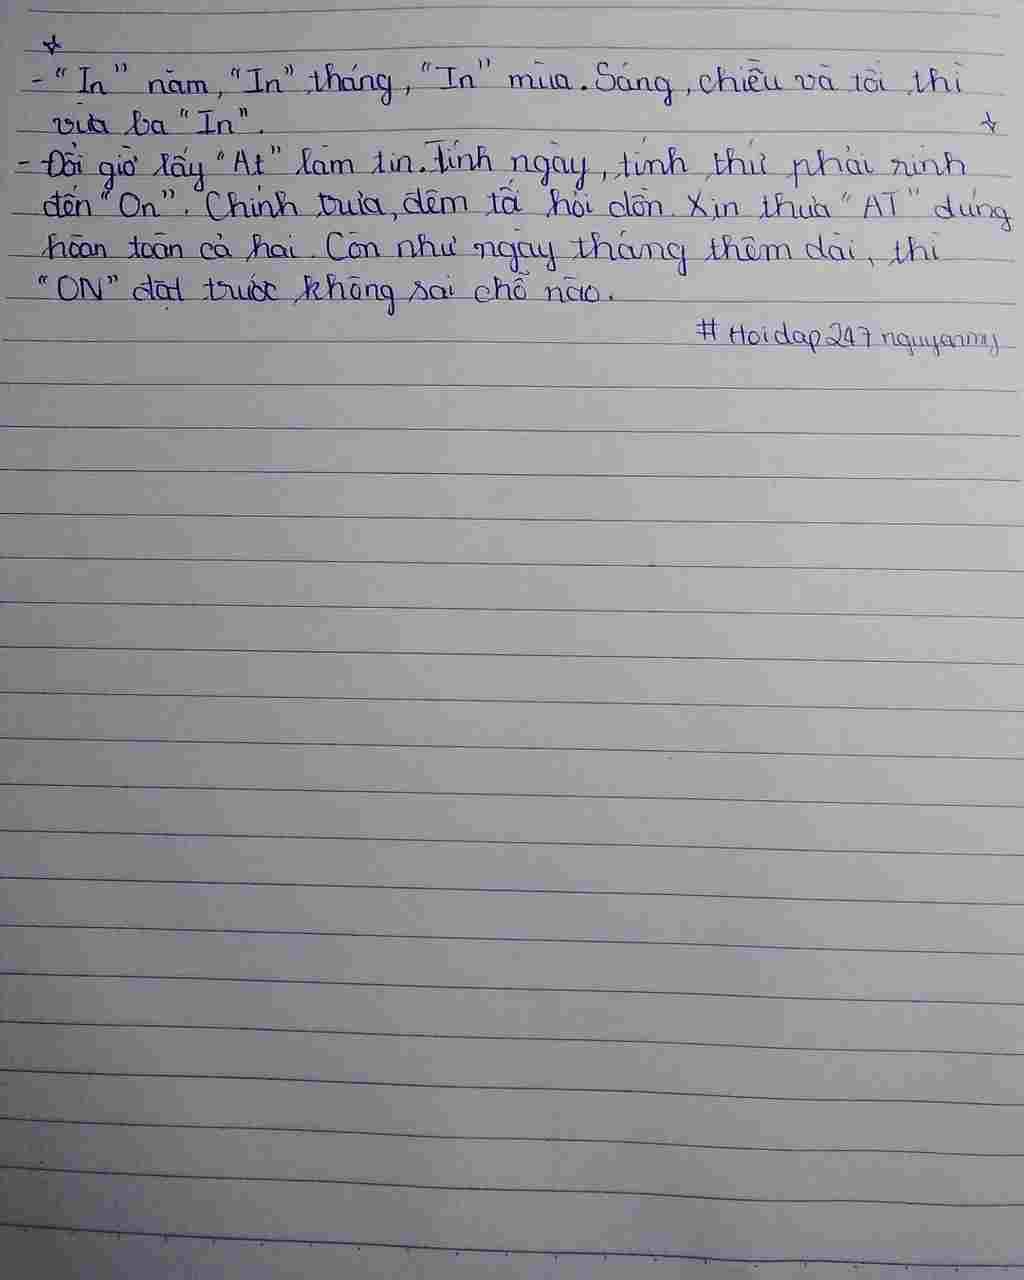 - "In" năm, "In" tháng, "In" mùa. Sáng, chiều và tối thì
vừa ba "In".
- Đổi giờ lấy "At" làm tin. Tính ngày, tính thứ phải rinh
đến "On". Chính trưa, đêm tối hỏi dồn. Xin thưa "AT" đúng
hoàn toàn cả hai. Còn như ngày tháng thêm dài, thì
"ON" đặt trước không sai chỗ nào.
# Hoidap247nguyanmj